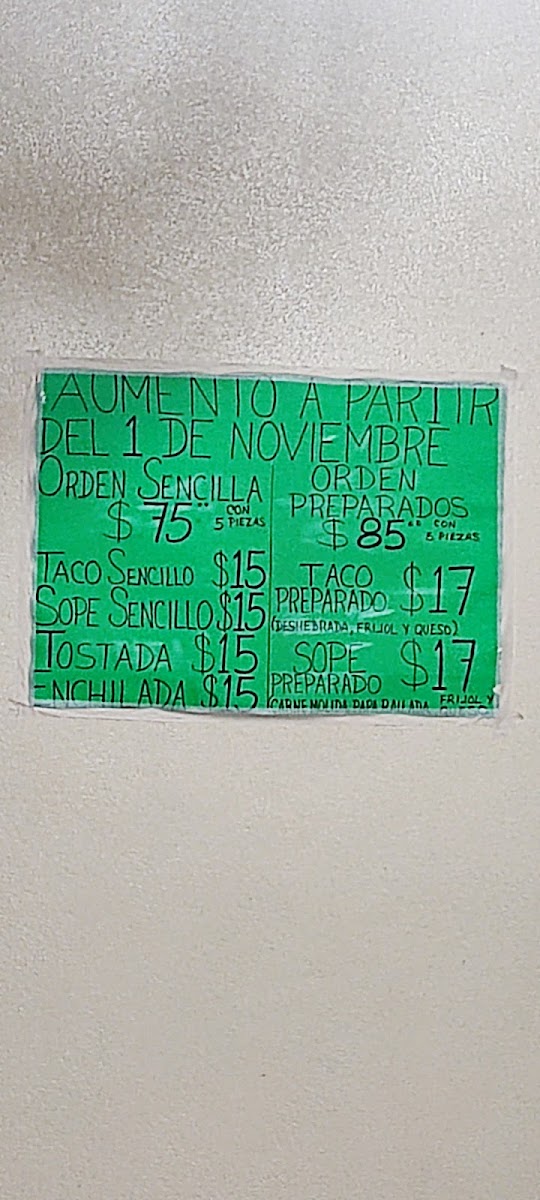 AUMENTO A PARTIR
DEL 1 DE NOVIEMBRE
ORDEN SENCILLA
$ 75.00 CON
5 PIEZAS
TACO SENCILLO $15
SOPE SENCILLO $15
TOSTADA $15
ENCHILADA $15
ORDEN
PREPARADOS
$ 85.00 CON
5 PIEZAS
TACO
PREPARADO $17
(DESHEBRADA, FRIJOL Y QUESO)
SOPE
PREPARADO $17
(CARNE MOLIDA, PAPA RALLADA, FRIJOL Y